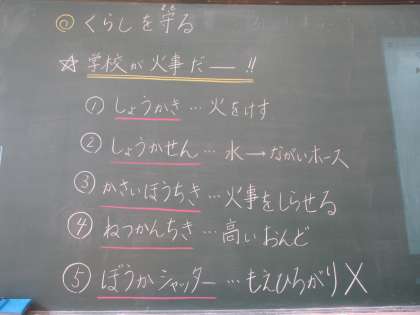 ◎ くらしを守る
☆ 学校が火事だー!!
① しょうかき…火をけす
② しょうかせん…水→ながいホース
③ かさいほうちき…火事をしらせる
④ ねつかんちき…高いおんど
⑤ ぼうかシャッター…もえひろがり×